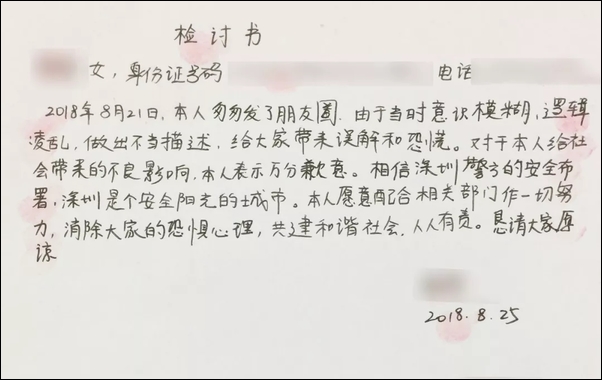 检讨书
女，身份证号码 电话
2018年8月21日，本人匆匆发了朋友圈．由于当时意识模糊，逻辑
凌乱，做出不当描述，给大家带来误解和恐慌。对于本人给社
会带来的不良影响，本人表示万分歉意。相信深圳警方的安全布
署，深圳是个安全阳光的城市。本人愿意配合相关部门作一切努
力，消除大家的恐惧心理，共建和谐社会．人人有责。恳请大家原
谅
2018.8.25